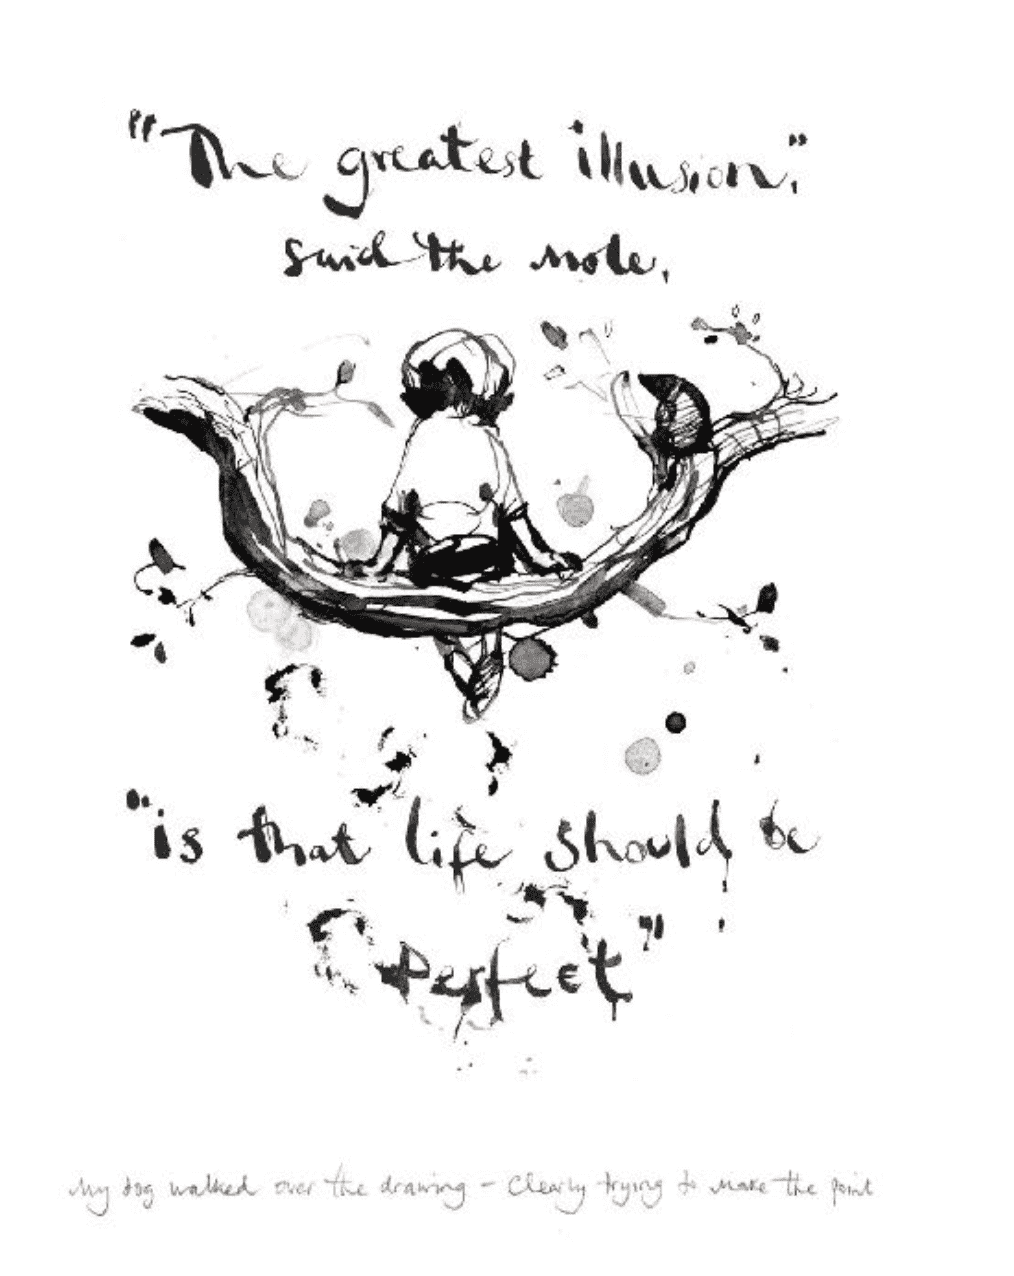 "The greatest illusion,"
said the mole,
"is that life should be
Perfect"
My dog walked over the drawing – Clearly trying to make the point